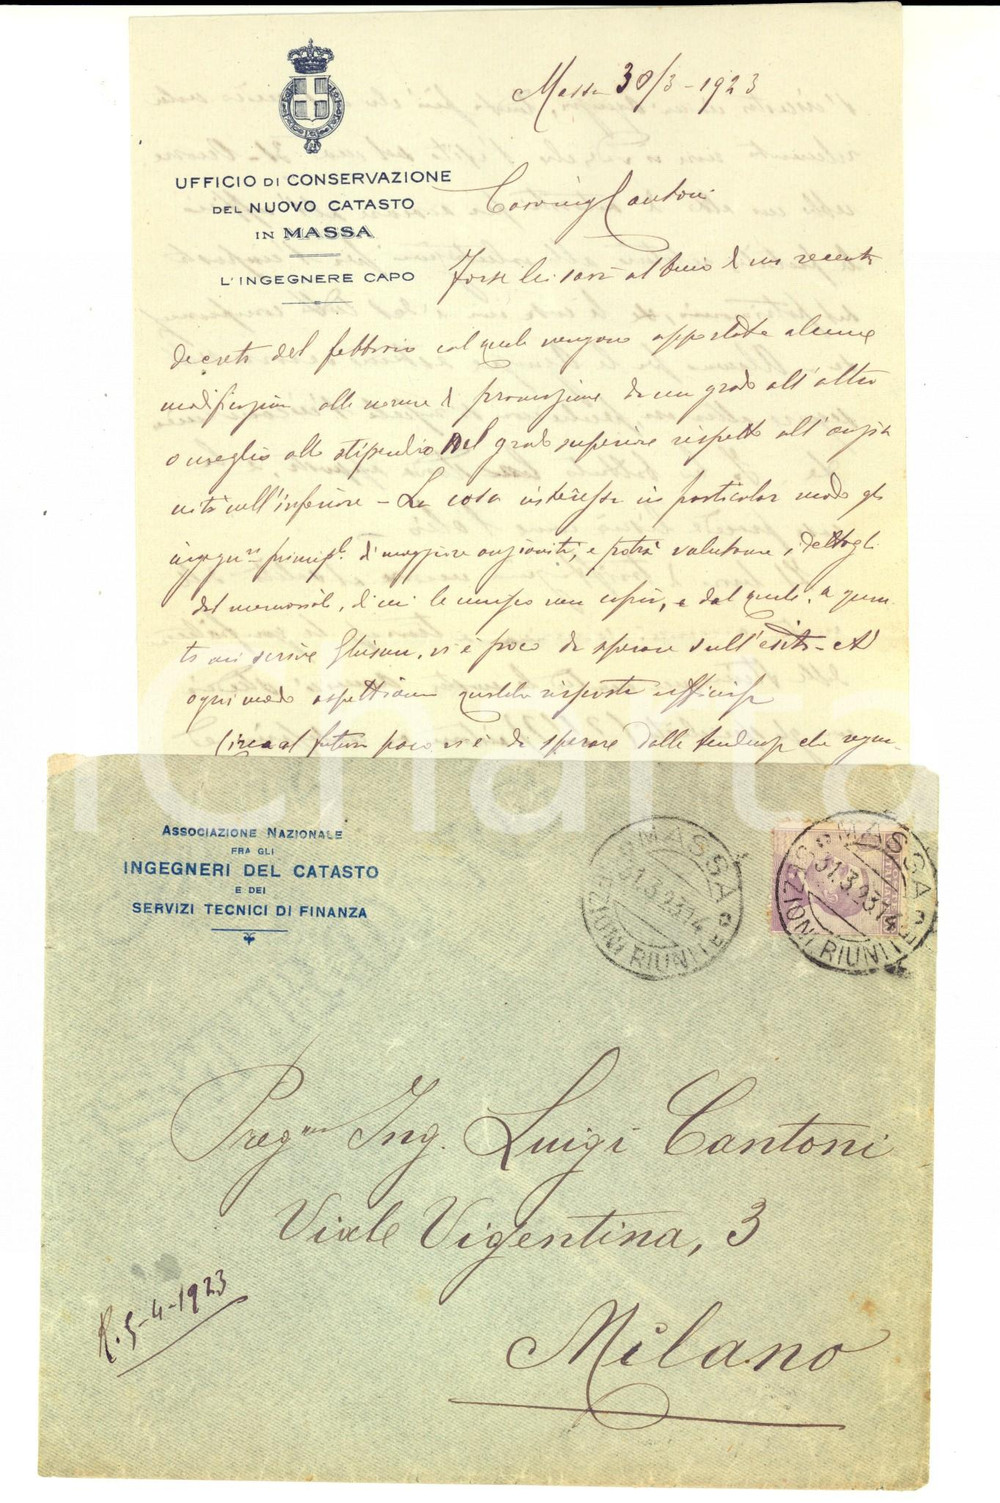 UFFICIO DI CONSERVAZIONE
DEL NUOVO CATASTO
IN MASSA
L'INGEGNERE CAPO
Massa 30/3-1923
Caro ing Cantoni
Forse Lei sarà al di un recente
decreto del febbraio col quale vengono apportate alcune
modificazioni alle norme di promozione da un grado all'altro
o meglio allo stipendio nel grado superiore rispetto all'anzia
nità nell'inferiore - La cosa interessa in particolar modo gli
ingegn.ri princip.li di maggiore anzianità, e potrà valutare i dettagli
dal memoriale, di cui Le unisco una copia, e dal quale, a quan
to mi scrive , vi è poco da sperare sull'esito - Ad
ogni modo aspettiamo qualche risposta ufficiosa
Circa al futuro poco vi è da sperare dalle tendenze che
ASSOCIAZIONE NAZIONALE
FRA GLI
INGEGNERI DEL CATASTO
E DEI
SERVIZI TECNICI DI FINANZA
MASSA
31.3.23 14
SEZIONI RIUNITE
MASSA
31.3.23 14
SEZIONI RIUNITE
Preg.mo Ing. Luigi Cantoni
Viale Vigentina, 3
Milano
R. 5-4-1923